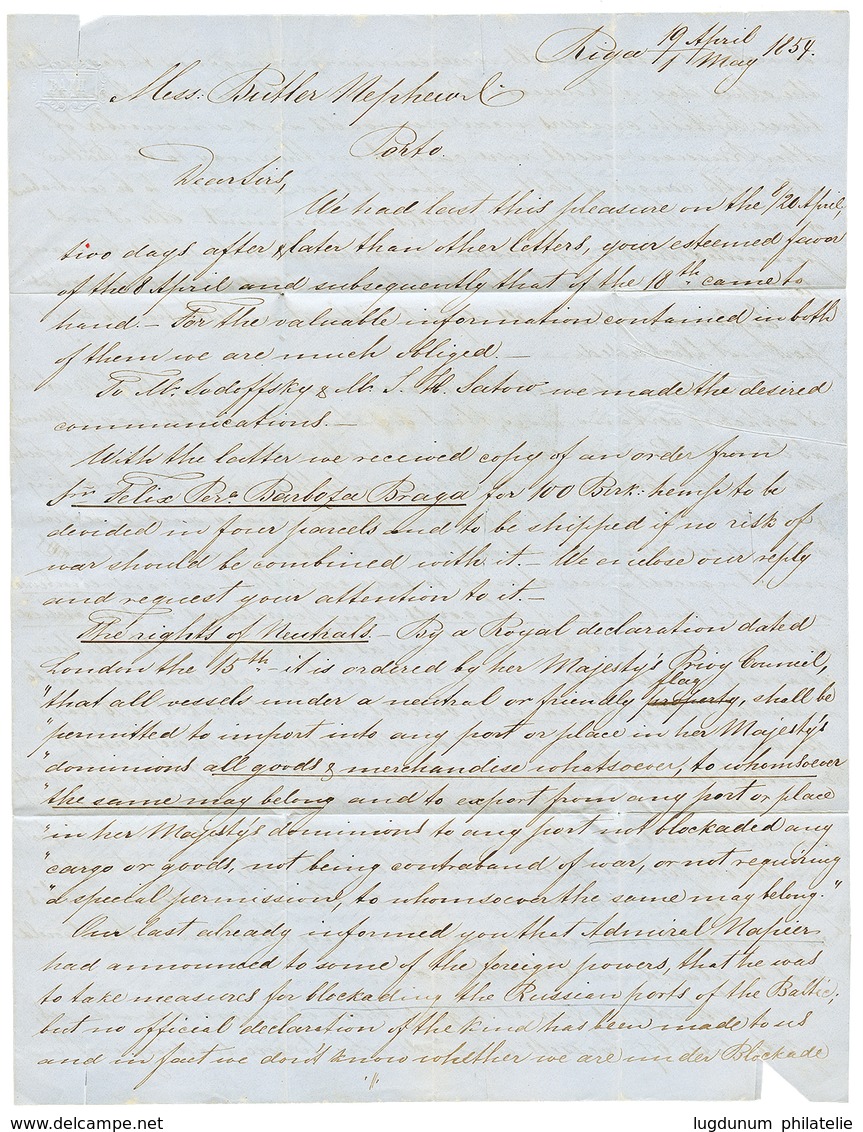 Riga 19 April / 1 May 1854.
Mess: Butler Nephew & C
Porto.
Dear Sirs,
We had last this pleasure on the 8/20 April,
two days after & later than other letters, your esteemed favor
of the 8 April and subsequently that of the 18th came to
hand. – For the valuable information contained in both
of them we are much obliged. –
To Mr. Sodoffsky & Mr. S. H. Satow we made the desired
communications. –
With the latter we received copy of an order from
Snr Felix Pera Barboza Braga for 100 Berk: hemp to be
devided in four parcels and to be shipped if no risk of
war should be combined with it. – We enclose our reply
and request your attention to it. –
The rights of Neutrals – By a Royal declaration dated
London the 15th – it is ordered by her Majesty's Privy Council,
flag
"that all vessels under a neutral or friendly property, shall be
"permitted to import into any port or place in her Majesty's
"dominions all goods & merchandise whatsoever, to whomsoever
"the same may belong and to export from any port or place
"in her Majesty's dominions to any port not blockaded any
"cargo or goods, not being contraband of war, or not requiring
"a special permission, to whomsoever the same may belong."
Our last already informed you that Admiral Napier
had announced to some of the foreign powers, that he was
to take measures for blockading the Russian ports of the Baltic,
but no official declaration of the kind has been made to us
and in fact we don't know whether we are under Blockade
delcampe.net
lugdunum philatelie